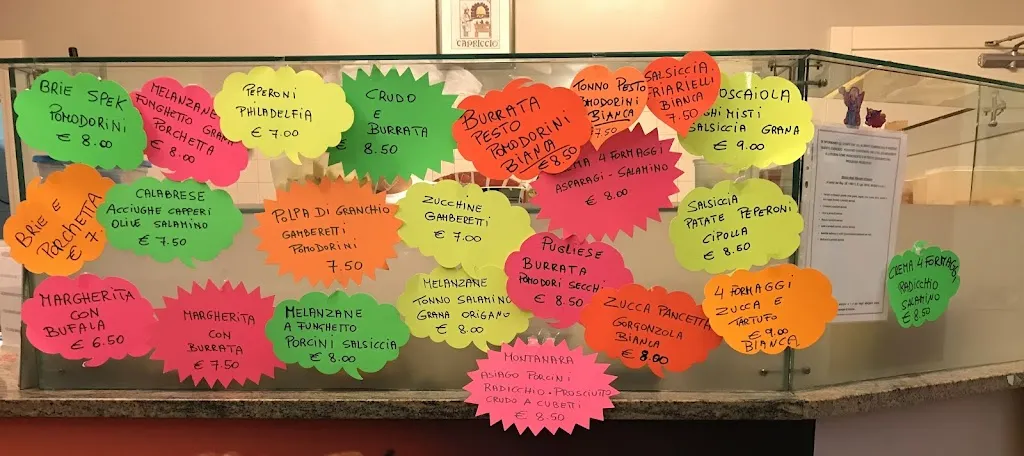 CAPRICCIO
BRIE SPEK
POMODORINI
€ 8.00
MELANZANE
FONGHETTO GRANA
PORCHETTA
€ 8.00
PEPERONI
PHILADELFIA
€ 7.00
CRUDO
E
BURRATA
€ 8.50
BURRATA
PESTO
POMODORINI
BIANCA
€ 8.50
TONNO PESTO
POMODORINI
BIANCA
7.50
SALSICCIA
FRIARIELLI
BIANCA
7.50
BOSCAIOLA
FUNGHI MISTI
SALSICCIA GRANA
€ 9.00
BRIE E
PORCHETTA
€ 7
CALABRESE
ACCIUGHE CAPPERI
OLIVE SALAMINO
€ 7.50
POLPA DI GRANCHIO
GAMBERETTI
POMODORINI
7.50
ZUCCHINE
GAMBERETTI
€ 7.00
CREMA 4 FORMAGGI
ASPARAGI - SALAMINO
€ 8.00
SALSICCIA
PATATE PEPERONI
CIPOLLA
€ 8.50
MARGHERITA
CON
BUFALA
€ 6.50
MARGHERITA
CON
BURRATA
€ 7.50
MELANZANE
A FUNGHETTO
PORCINI SALSICCIA
€ 8.00
MELANZANE
TONNO SALAMINO
GRANA ORIGANO
€ 8.00
PUGLIESE
BURRATA
POMODORI SECCHI
€ 8.50
ZUCCA PANCETTA
GORGONZOLA
BIANCA
€ 8.00
4 FORMAGGI
ZUCCA E
TARTUFO
€ 9.00
BIANCA
CREMA 4 FORMAGGI
RADICCHIO
SALAMINO
€ 8.50
MONTANARA
ASIAGO PORCINI
RADICCHIO - PROSCIUTTO
CRUDO A CUBETTI
€ 8.50